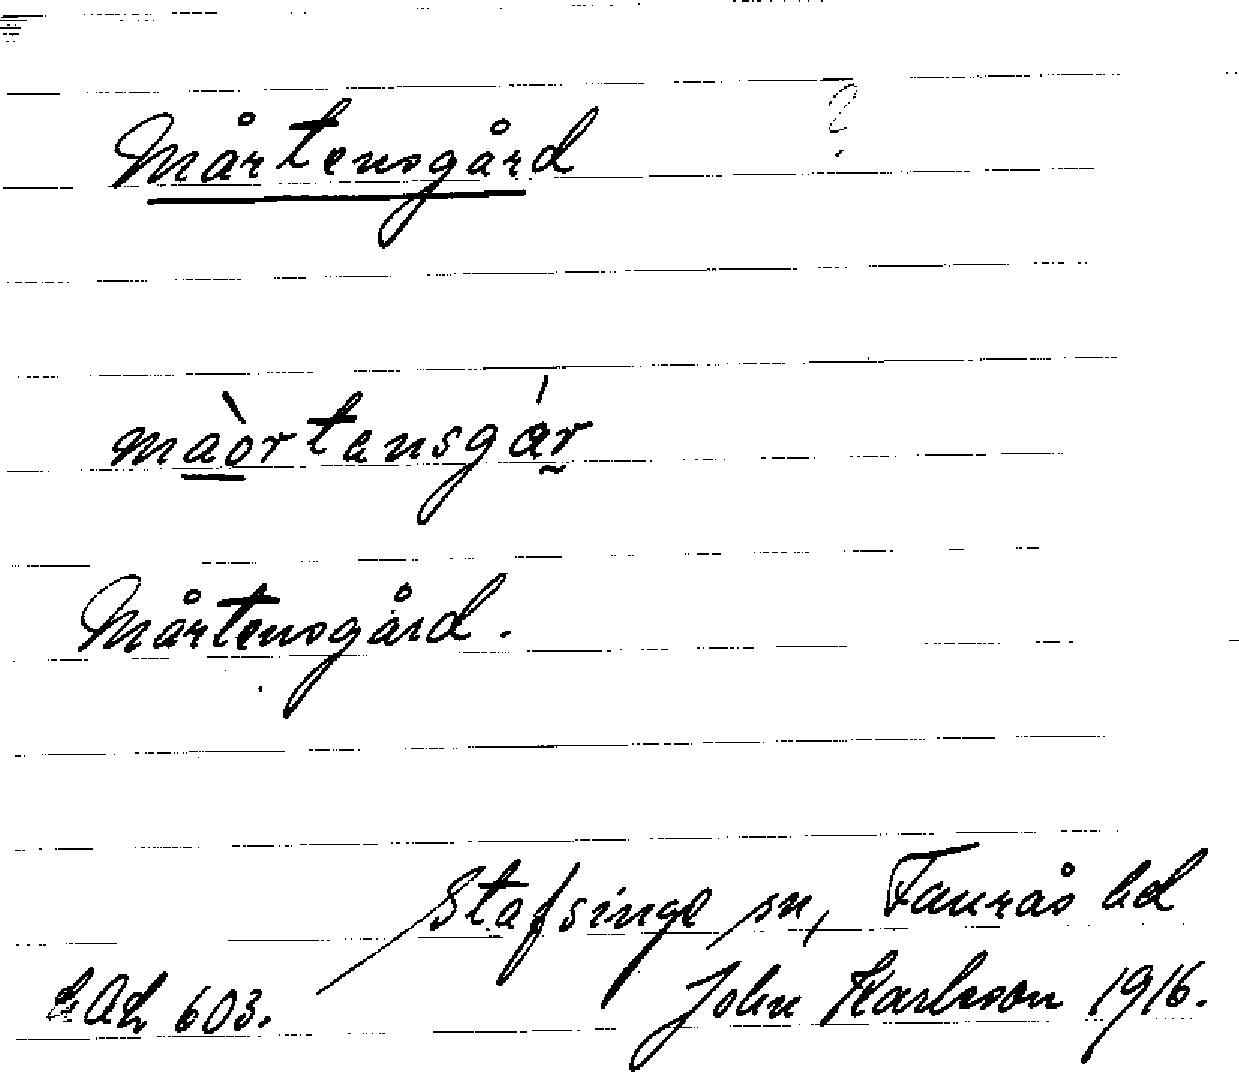 Mårtensgård ?
màòrtensgár
Mårtensgård.
Stafsinge sn, Faurås hd
LAL 603. John Karlsson 1916.